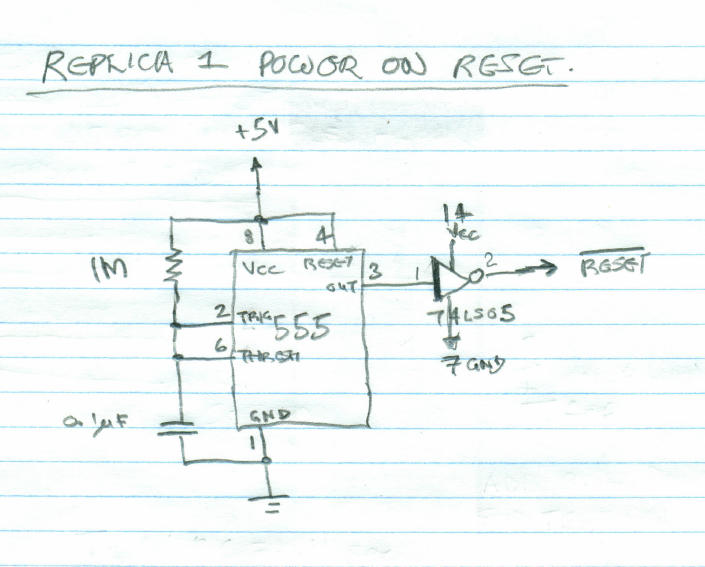 REPLICA 1 POWER ON RESET.
+5V
14
VCC
8 4
1M
VCC RESET
OUT
3 1 2
RESET
2 TRIG 555
74LS05
6 THRESH
7 GND
0.1µF
GND
1